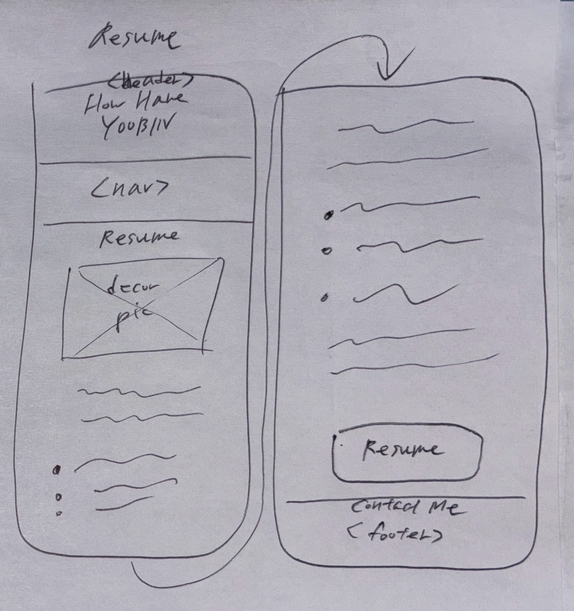 Resume
<header>
How Have
<nav>
Resume
decor
pic
Resume
Contact Me
<footer>